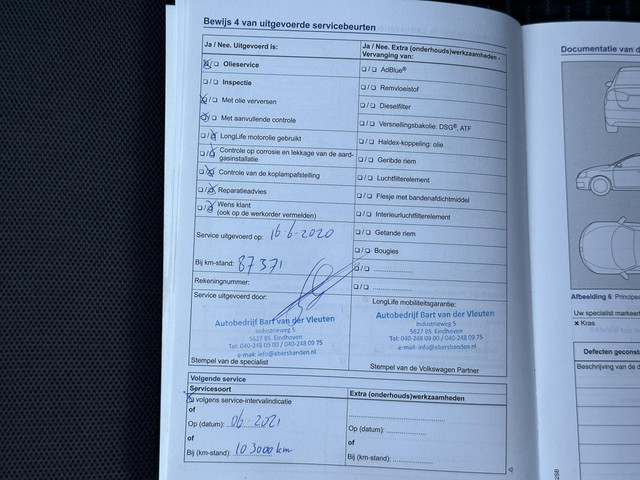 Bewijs 4 van uitgevoerde servicebeurten
Ja / Nee. Uitgevoerd is:
Olieservice
Inspectie
Met olie verversen
Met aanvullende controle
LongLife motorolie gebruikt
Controle op corrosie en lekkage van de aard-
gasinstallatie
Controle van de koplampafstelling
Reparatieadvies
Wens klant
(ook op de werkorder vermelden)
Service uitgevoerd op: 16-6-2020
Bij km-stand: 87371
Rekeningnummer:
Service uitgevoerd door:
Autobedrijf Bart van der Vleuten
Industrieweg 5
5627 BS Eindhoven
Tel: 040-248 09 00 / 040-248 09 75
e-mail: info@ebershanden.nl
Stempel van de specialist
Ja / Nee. Extra (onderhouds)werkzaamheden -
Vervanging van:
AdBlue®
Remvloeistof
Dieselfilter
Versnellingsbakolie: DSG®, ATF
Haldex-koppeling: olie
Geribde riem
Luchtfilterelement
Flesje met bandenafdichtmiddel
Interieurluchtfilterelement
Getande riem
Bougies
LongLife mobiliteitsgarantie:
Autobedrijf Bart van der Vleuten
Industrieweg 5
5627 BS Eindhoven
Tel: 040-248 09 00 / 040-248 09 75
e-mail: info@ebershanden.nl
Stempel van de Volkswagen Partner
Volgende service
Servicesoort
volgens service-intervalindicatie
of
Op (datum): 06-2021
of
Bij (km-stand): 103000 km
Extra (onderhouds)werkzaamheden
Op (datum):
of
Bij (km-stand):
Documentatie van d
Afbeelding 6 Principes
Uw specialist markeert
× Kras
Defecten geconst
Beschrijving van de d